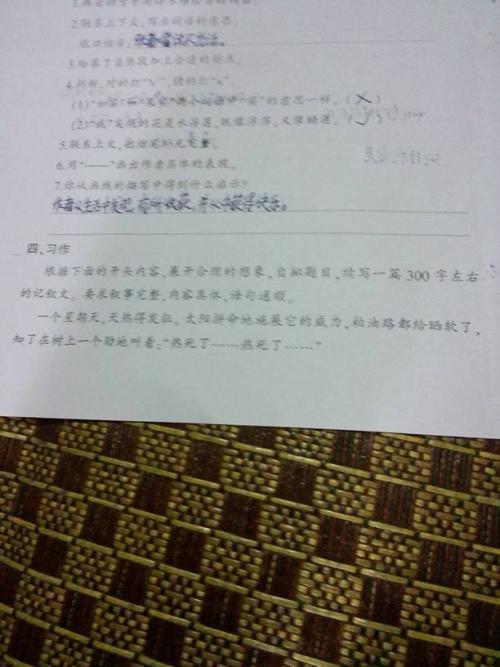 2.联系上下文,写出词语的意思。
张口结舌:
3.给第7自然段加上合适的标点。
4.判断,对的打“√”,错的打“×”。
的意思一样。(×)
(2)“我”发现的花是水浮莲,既像浮萍,又像睡莲。
5.联系上文,把结尾补充完整。
6.用“——”画出作者具体的表现。
7.你从画线的描写中得到什么启示?
作者从生活中发现,有所收获,并从中获得快乐。
四、习作
根据下面的开头内容,展开合理的想象,自拟题目,续写一篇300字左右
的记叙文。要求叙事完整,内容具体,语句通顺。
一个星期天,天热得发狂。太阳拼命地施展它的威力,柏油路都给晒软了,
知了在树上一个劲地叫着:“热死了……热死了……”